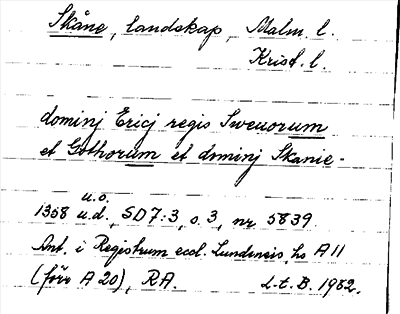 Skåne, landskap, Malm. l.
Krist. l.
dominj Ericj regis Sweuorum
et Gothorum et dominj Skanie -
u.o.
1358 u.d., SD 7:3, s. 3, nr 5839.
Ant. i Registrum eccl. Lundensis, hs A 11
(förr A 20), RA.
L.t.B. 1982.